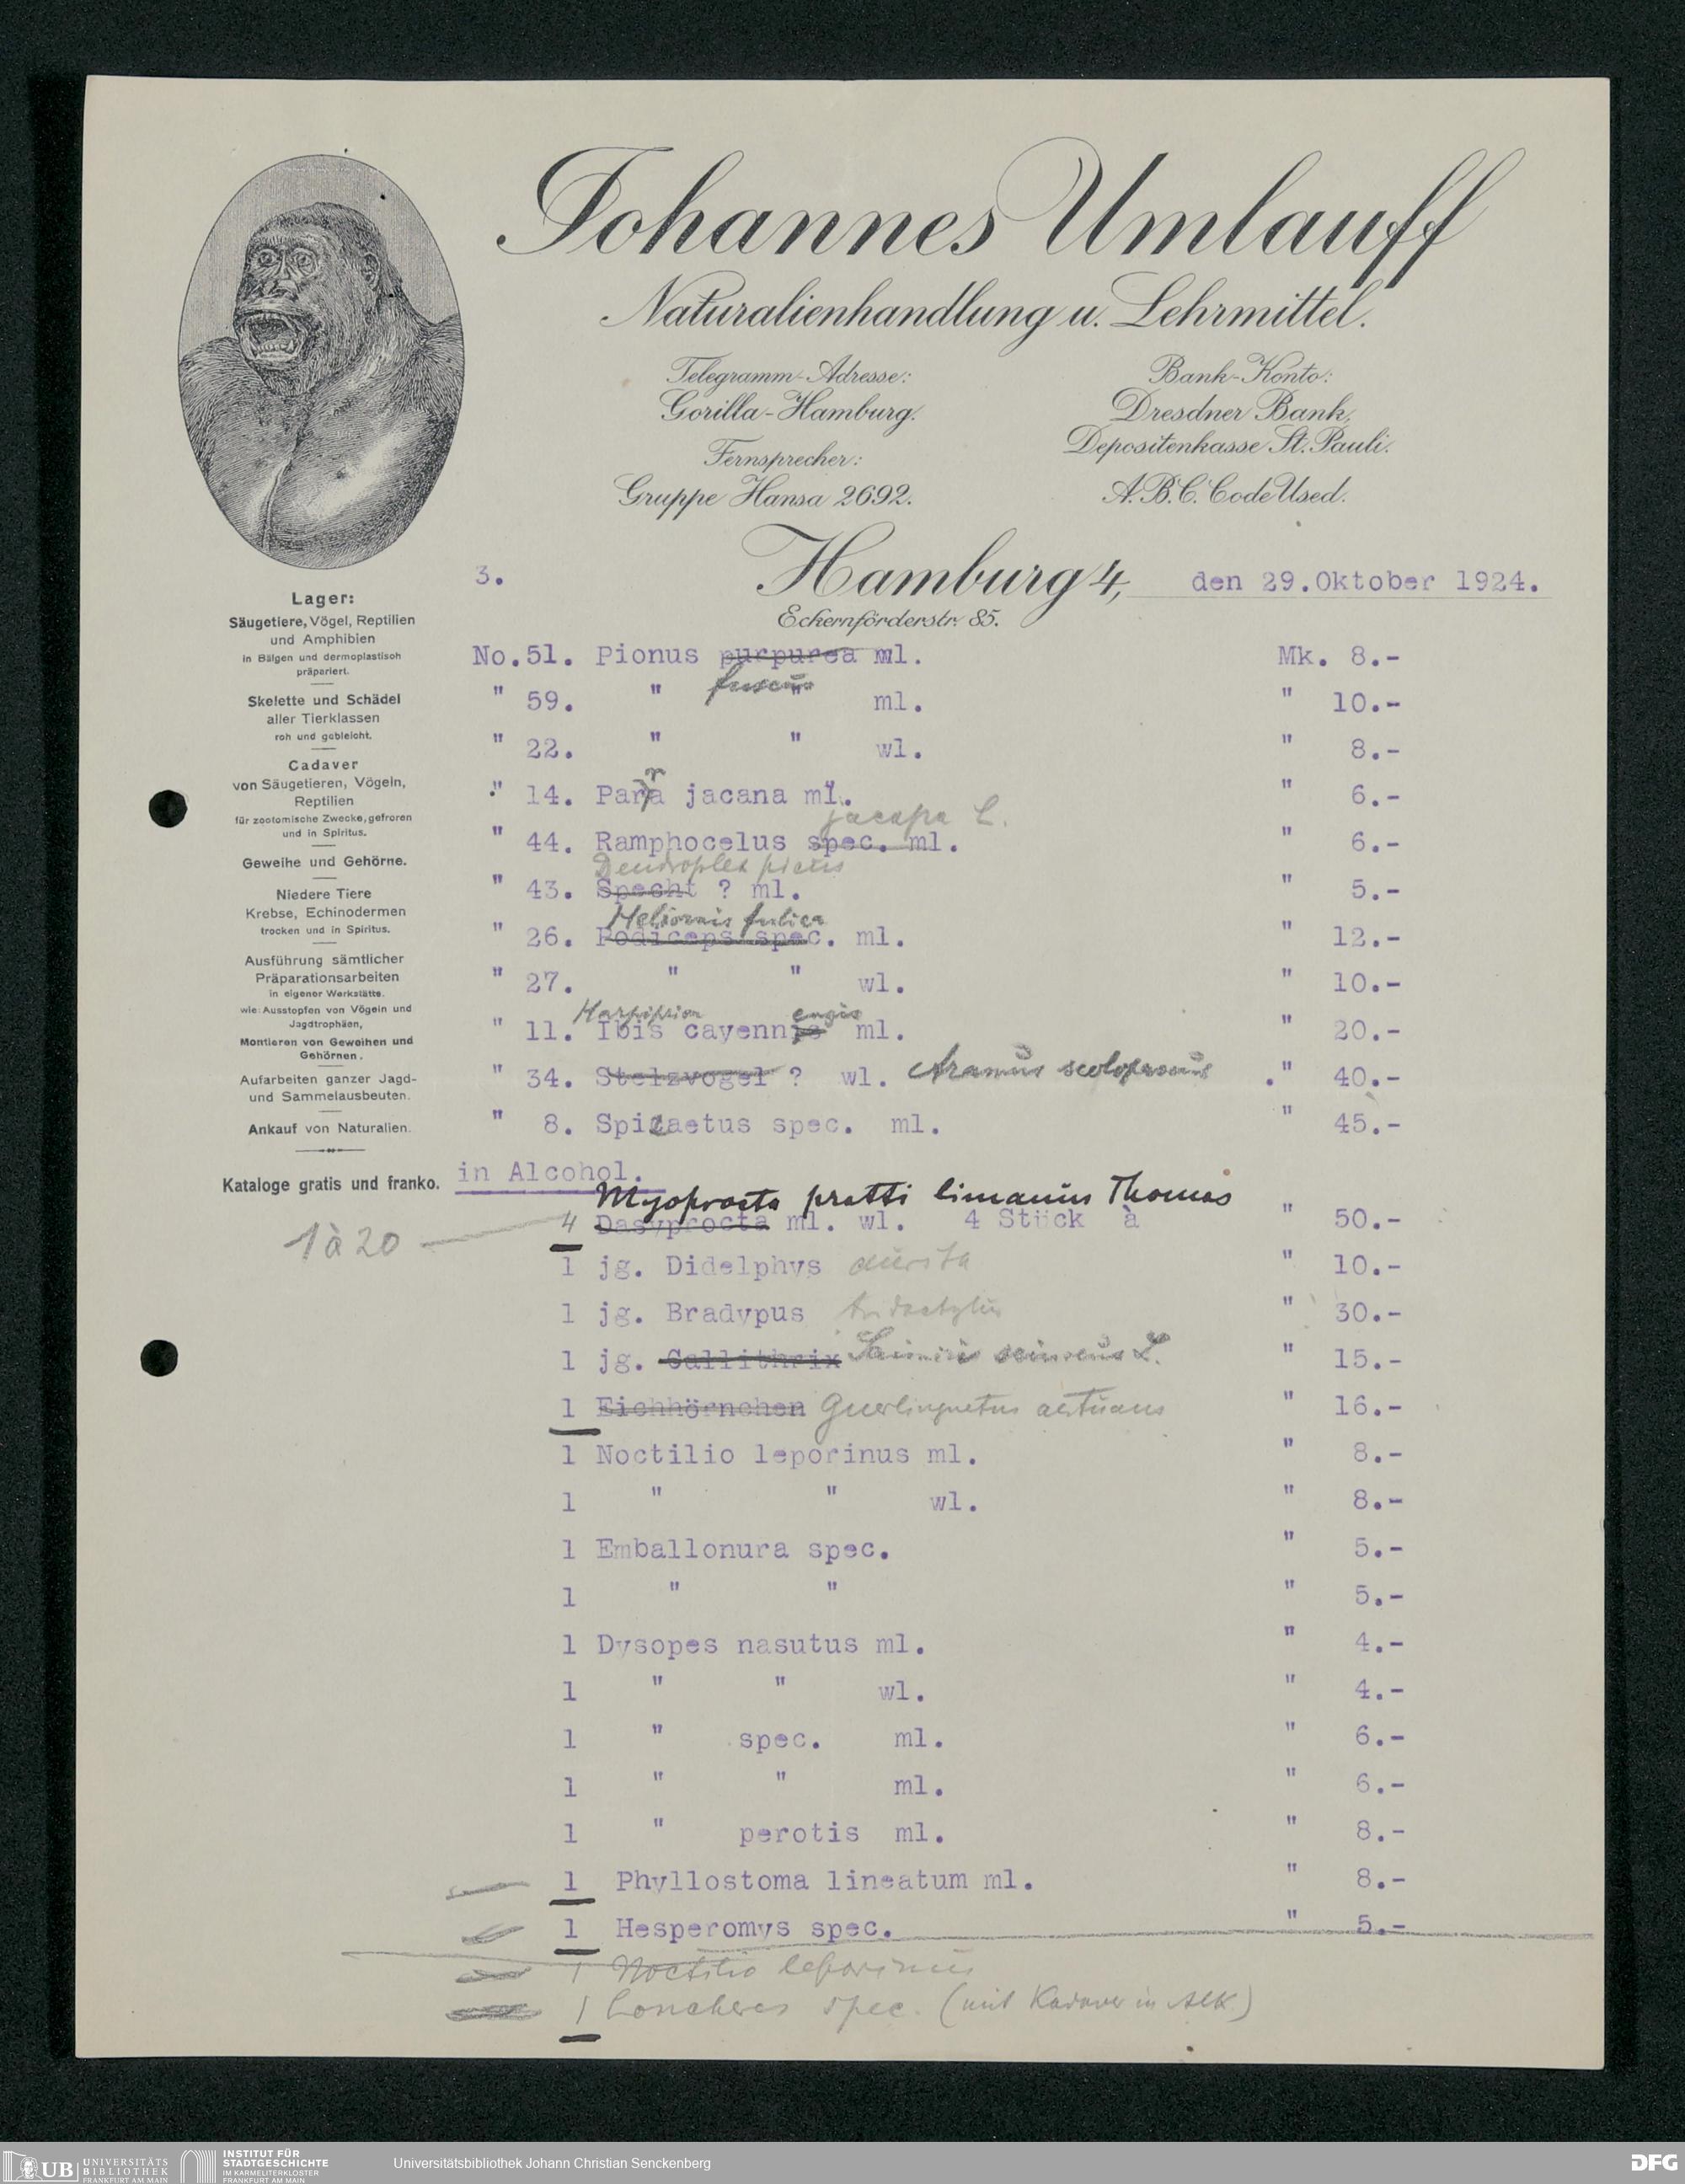 Johannes Umlauff
Naturalienhandlung u. Lehrmittel.
Telegramm-Adresse:
Gorilla-Hamburg.
Fernsprecher:
Gruppe Hansa 2692.
Bank-Konto:
Dresdner Bank,
Depositenkasse St. Pauli.
A.B.C. Code Used.
3.
Hamburg 4, den 29.Oktober 1924.
Eckernförderstr. 85.
Lager:
Säugetiere, Vögel, Reptilien
und Amphibien
in Bälgen und dermoplastisch
präpariert.
Skelette und Schädel
aller Tierklassen
roh und gebleicht.
Cadaver
von Säugetieren, Vögeln,
Reptilien
für zootomische Zwecke, gefroren
und in Spiritus.
Geweihe und Gehörne.
Niedere Tiere
Krebse, Echinodermen
trocken und in Spiritus.
Ausführung sämtlicher
Präparationsarbeiten
in eigener Werkstätte.
wie: Ausstopfen von Vögeln und
Jagdtrophäen,
Montieren von Geweihen und
Gehörnen.
Aufarbeiten ganzer Jagd-
und Sammelausbeuten.
Ankauf von Naturalien.
Kataloge gratis und franko.
No.51. Pionus purpurea ml. Mk. 8.-
fuscus
" 59. " " ml. " 10.-
" 22. " " wl. " 8.-
r
" 14. Para jacana ml. " 6.-
jacapa L.
" 44. Ramphocelus spec. ml. " 6.-
Dendroplex picus
" 43. Specht ? ml. " 5.-
Heliornis fulica
" 26. Podiceps spec. ml. " 12.-
" 27. " " wl. " 10.-
Harpiprion ensis
" 11. Ibis cayennis ml. " 20.-
" 34. Stelzvogel ? wl. Aramus scolopaceus " 40.-
" 8. Spizaetus spec. ml. " 45.-
in Alcohol.
Myoprocta pratti limanus Thomas
1 à 20
4 Dasyprocta ml. wl. 4 Stück à " 50.-
1 jg. Didelphys aurita " 10.-
1 jg. Bradypus tridactylus " 30.-
1 jg. Callithrix Saimiri sciureus L. " 15.-
1 Eichhörnchen Guerlinguetus aestuans " 16.-
1 Noctilio leporinus ml. " 8.-
1 " " wl. " 8.-
1 Emballonura spec. " 5.-
1 " " " 5.-
1 Dysopes nasutus ml. " 4.-
1 " " wl. " 4.-
1 " spec. ml. " 6.-
1 " " ml. " 6.-
1 " perotis ml. " 8.-
1 Phyllostoma lineatum ml. " 8.-
1 Hesperomys spec. " 5.-
1 Noctilio leporinus
1 Loncheres spec. (mit Kadaver in Alk)
UB UNIVERSITÄTS
BIBLIOTHEK
FRANKFURT AM MAIN
INSTITUT FÜR
STADTGESCHICHTE
IM KARMELITERKLOSTER
FRANKFURT AM MAIN
Universitätsbibliothek Johann Christian Senckenberg
DFG